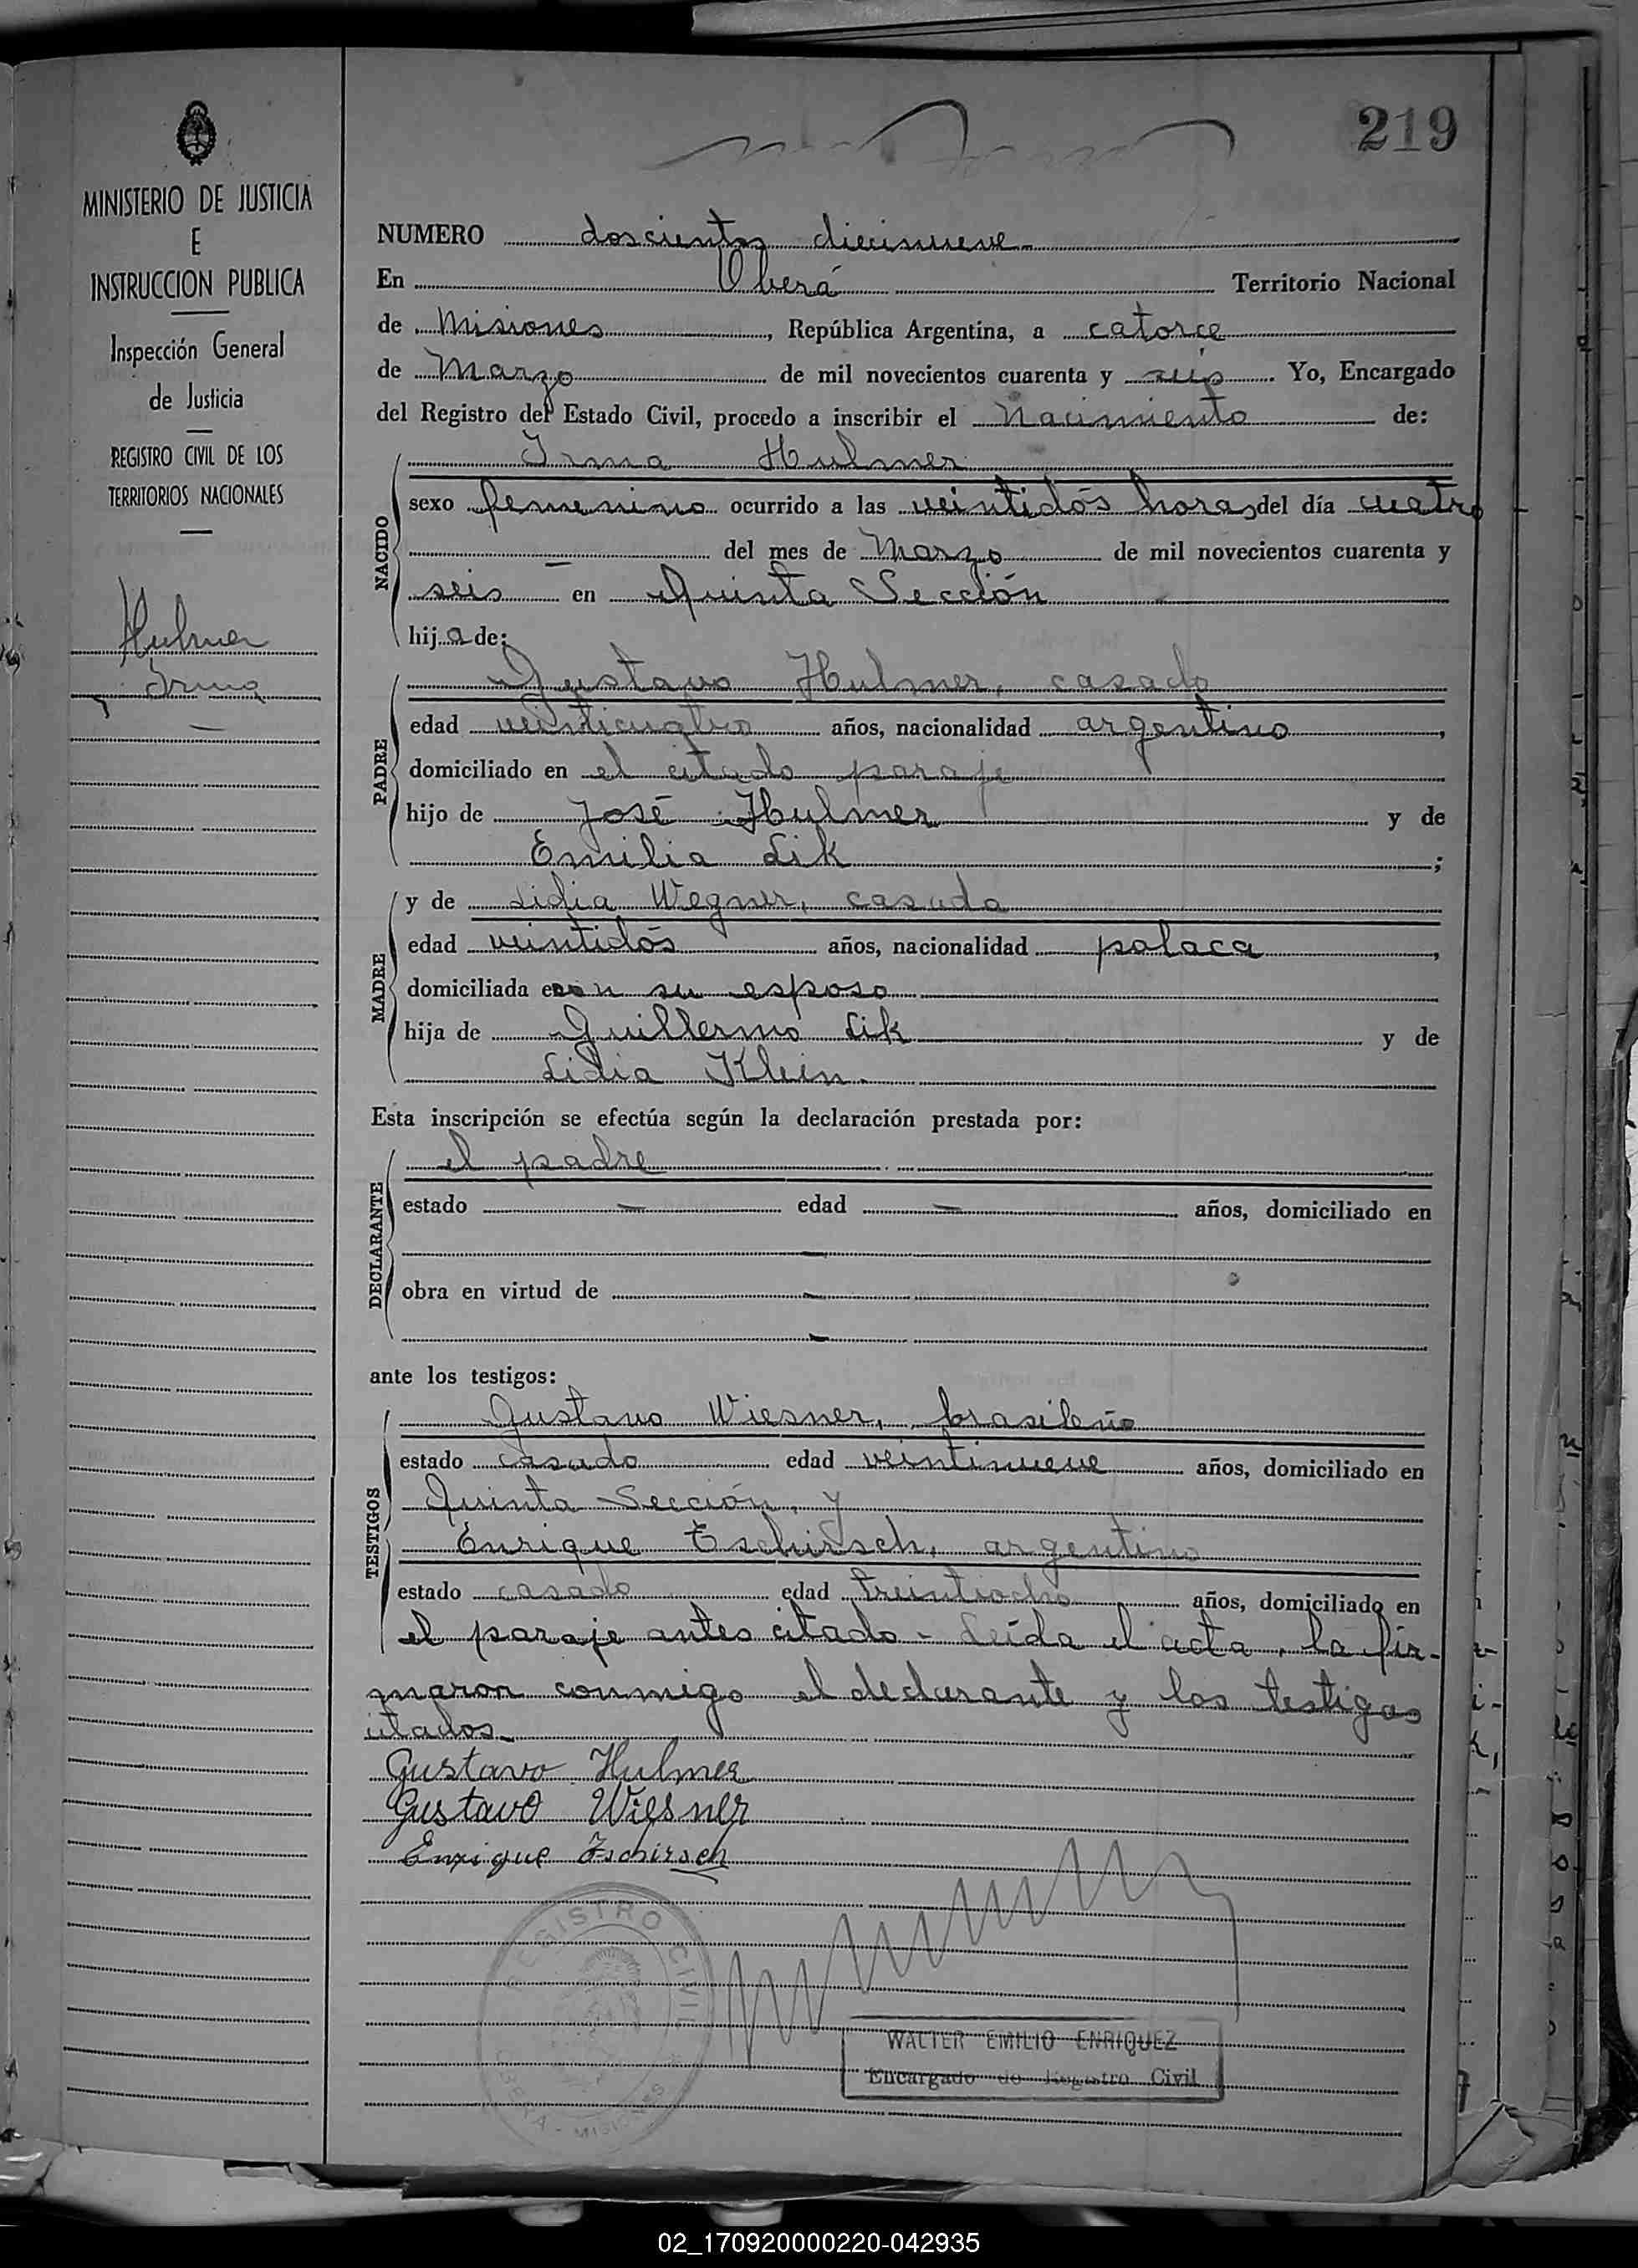 219
MINISTERIO DE JUSTICIA
E
INSTRUCCION PUBLICA
Inspección General
de Justicia
REGISTRO CIVIL DE LOS
TERRITORIOS NACIONALES
Hulmer
Irma
NUMERO doscientos diecinueve
En Oberá Territorio Nacional
de Misiones, República Argentina, a catorce
de Marzo de mil novecientos cuarenta y seis. Yo, Encargado
del Registro del Estado Civil, procedo a inscribir el Nacimiento de:
Irma Hulmer
NACIDO
sexo femenino ocurrido a las veintidós horas del día cuatro
del mes de Marzo de mil novecientos cuarenta y
seis en Quinta Sección
hija de:
Gustavo Hulmer, casado
PADRE
edad veinticuatro años, nacionalidad argentino,
domiciliado en el citado paraje
hijo de José Hulmer y de
Emilia Lik;
y de Lidia Wegner, casada
MADRE
edad veintidós años, nacionalidad polaca,
domiciliada con su esposo
hija de Guillermo Lik y de
Lidia Klein.
Esta inscripción se efectúa según la declaración prestada por:
el padre
DECLARANTE
estado — edad — años, domiciliado en
obra en virtud de
ante los testigos:
Gustavo Wiesner, brasileño
TESTIGOS
estado casado edad veintinueve años, domiciliado en
Quinta Sección, y
Enrique Tschirsch, argentino
estado casado edad treintiocho años, domiciliado en
el paraje antes citado - Leída el acta, la fir-
maron conmigo el declarante y los testigos
citados
Gustavo Hulmer
Gustavo Wiesner
Enrique Zschirsch
REGISTRO CIVIL
OBERA - MISIONES
WALTER EMILIO ENRIQUEZ
Encargado de Registro Civil
02_170920000220-042935